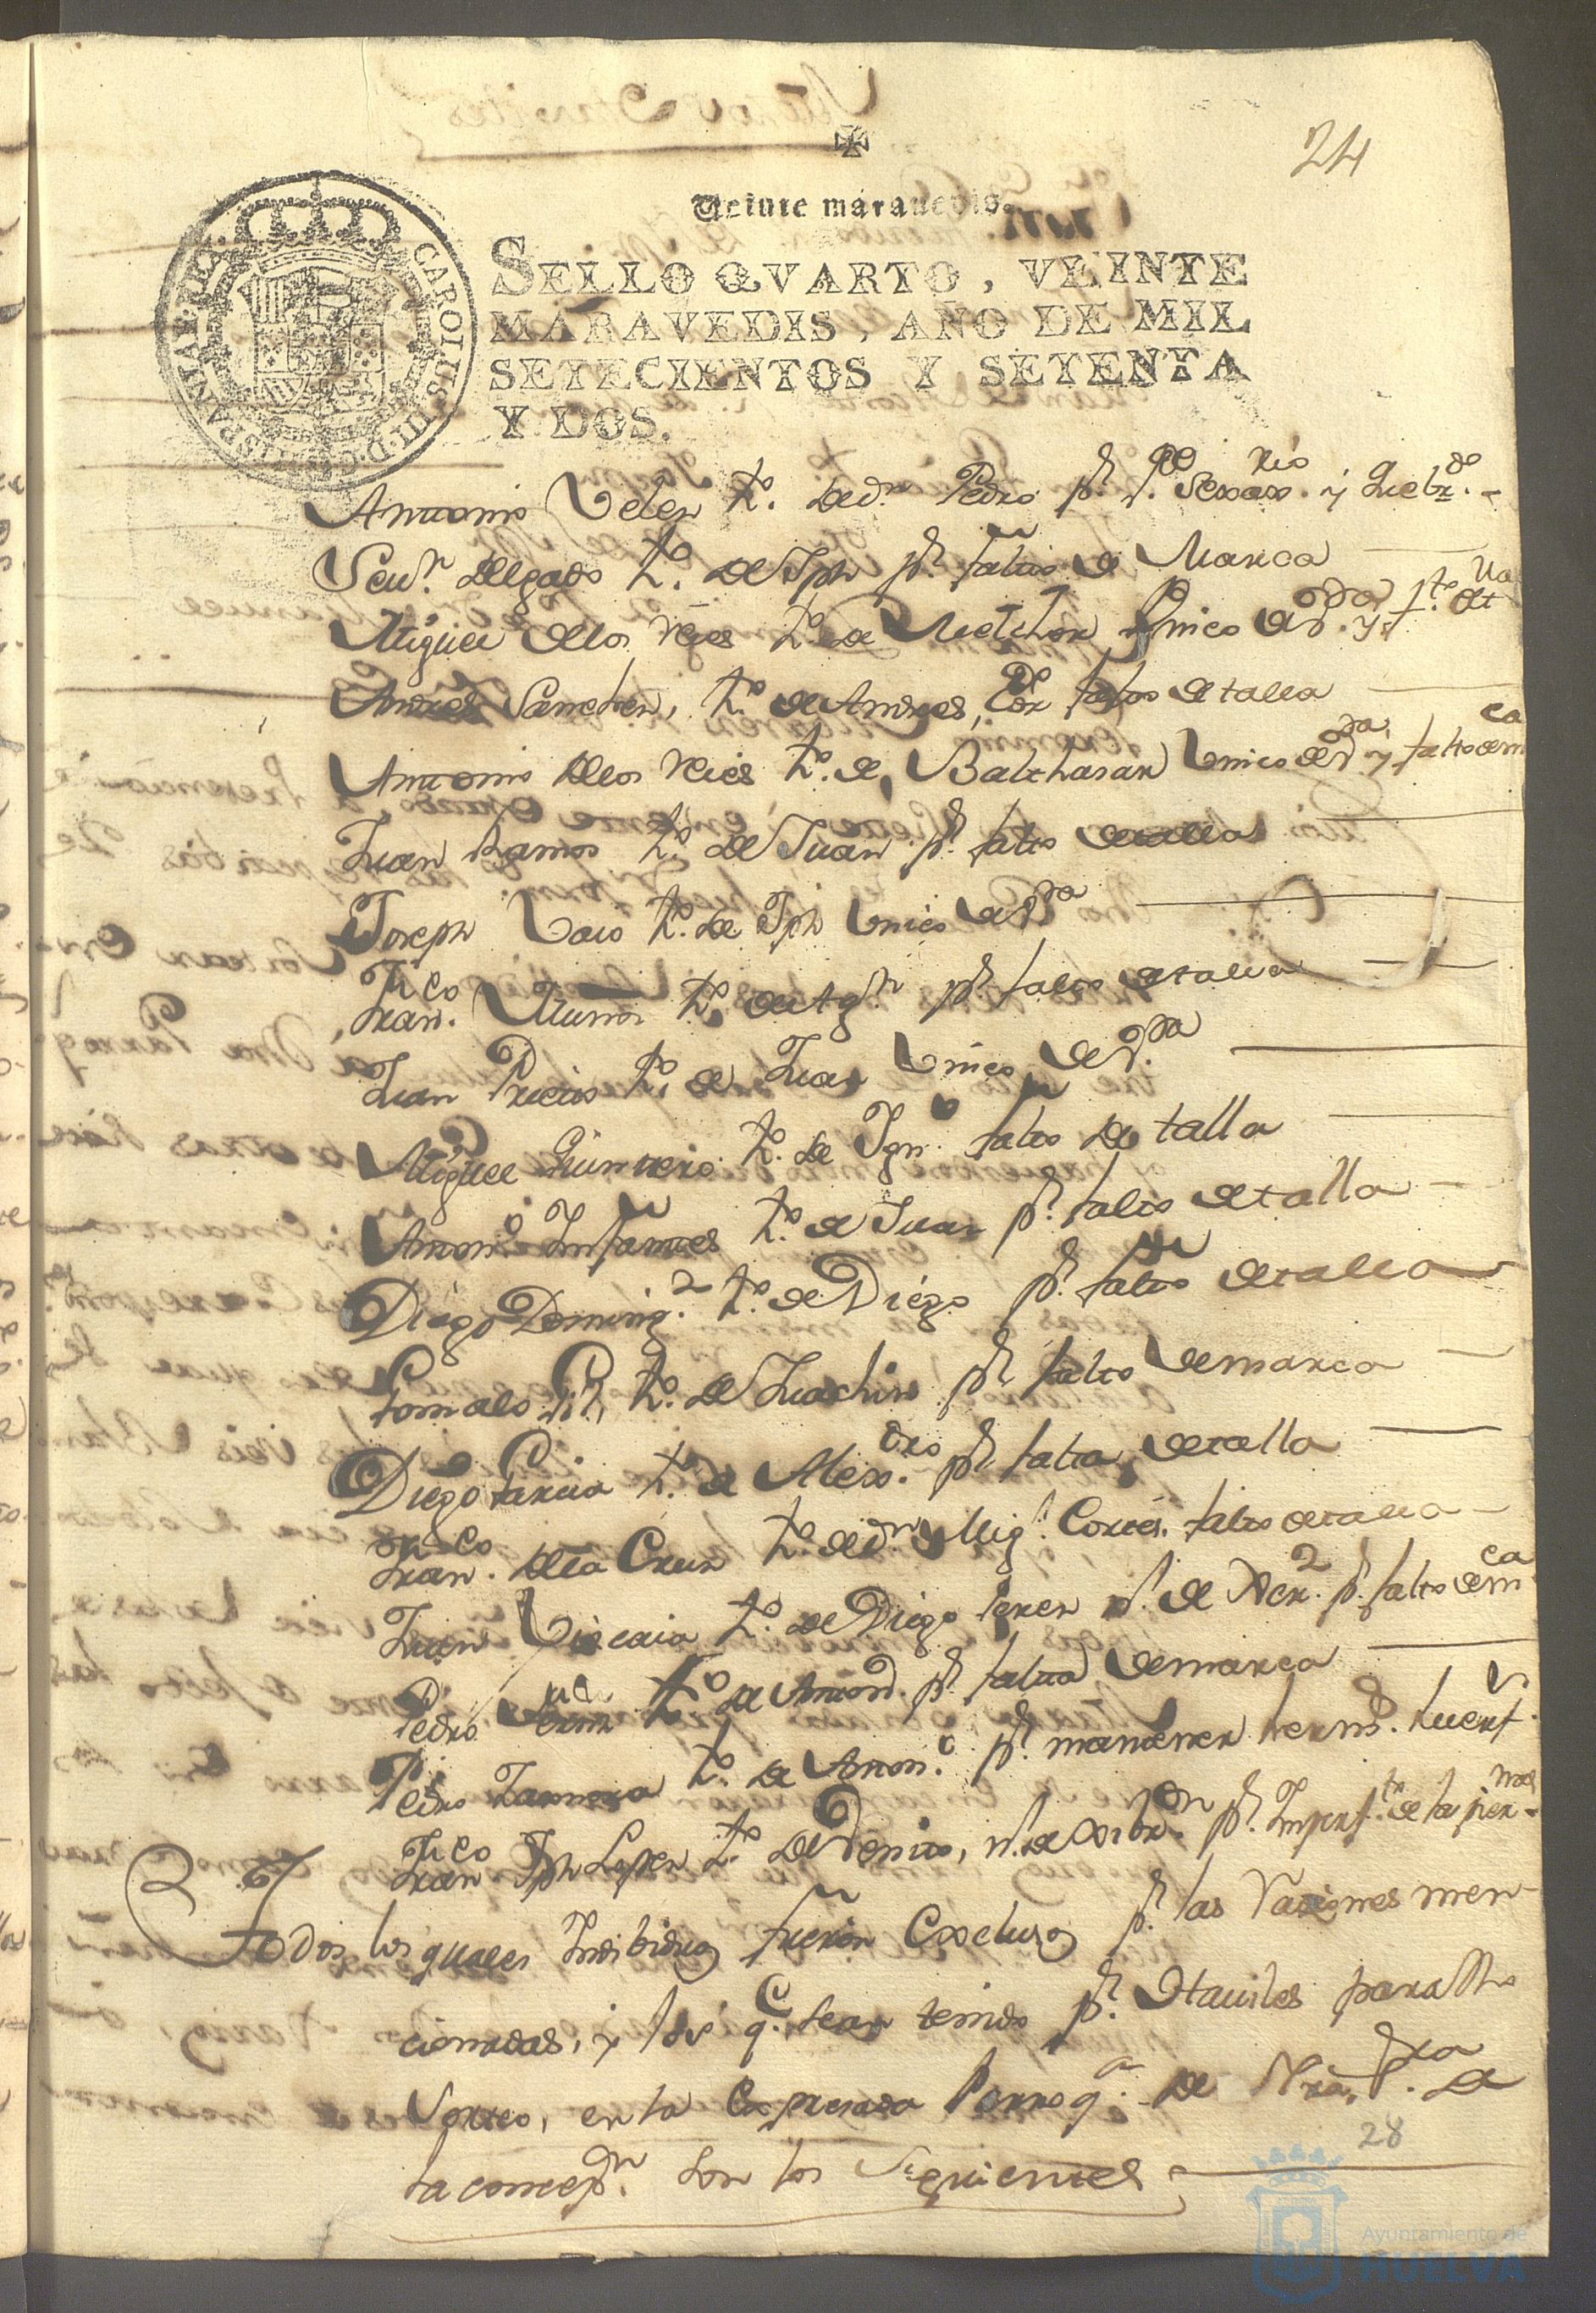 24
Veinte maravedis.
SELLO QVARTO, VEINTE
MARAVEDIS, AÑO DE MIL
SETECIENTOS Y SETENTA
Y DOS.
CAROLUS III D. G. HISPANIAR. REX
Antonio Velez h.º de d.n Pedro p.r
Seu.n Delgado h.º de Jph p.r falto de Marca
Miguel de los Reies h.º de Melchor Vnico de
Andres Sanchez, h.º de Andres, por falto de talla
Antonio de los Reies h.º de Balthasar Vnico de V.da y falto de m.ca
Juan Ramos h.º de Juan p.r falto de talla
Joseph h.º de Jph Vnico de V.da
Fran.co Muños h.º de Ag.n p.r falto de talla
Juan Prieto h.º de Juan Vnico de V.da
Miguel Quintero h.º de Ygn.o falto de talla
Anton.o Infantes h.º de Juan p.r falto de talla
Diego Doming.z h.º de Diego p.r falto de talla
Gonzalo Gil h.º de Juachin p.r falto de marca
Diego Garcia h.º de Alex.dro p.r falta de talla
Fran.co de la Cruz h.º de d.n Mig.l Cortes. falto de talla
Juan Viscaia h.º de Diego Perez p.r falto de m.ca
Pedro h.º de Anton.o p.r falta de marca
Pedro Zamora h.º de Anton.o p.r mantener herm.s huerf.s
Fran.co Jph Lopez h.º de p.r Imperf.n de las pier.nas
Todos los quales Indibiduos fueron Excluso p.r las Razones men-
cionadas, y los q.e sean tenido p.r Hauiles para dho
Sorteo, en la Expresada Parroq.a de Nra. S.ra de
la concep.n son los Siguientes
28
Ayuntamiento de
HUELVA